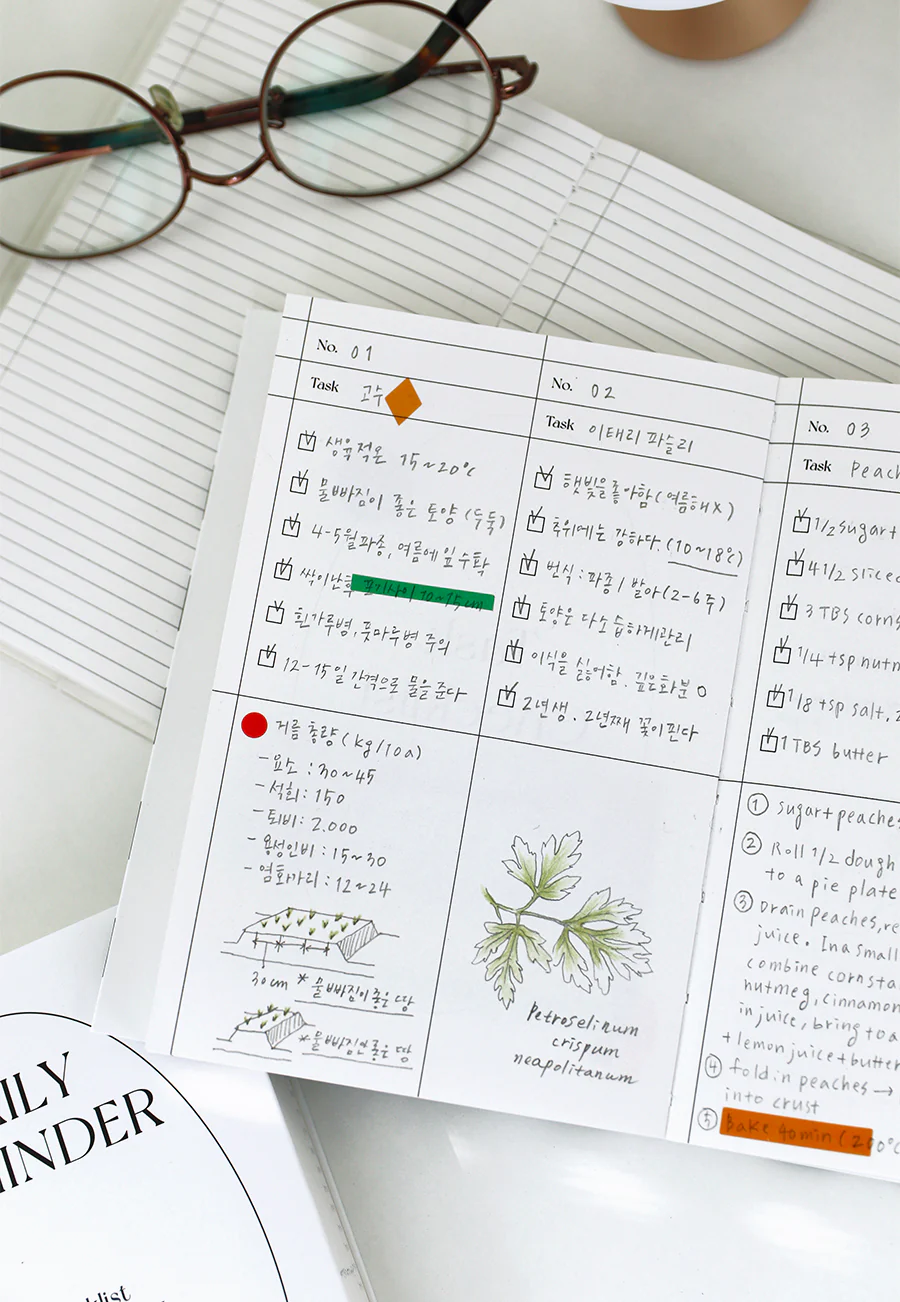 No. 01
Task 고수
생육적온 15~20℃
물빠짐이 좋은 토양 (두둑)
4-5월 파종, 여름에 잎 수확
싹이난후 포기사이 10~15cm
흰가루병, 풋마루병 주의
12-15일 간격으로 물을 준다
거름 총량 (kg/10a)
- 요소 : 30~45
- 석회 : 150
- 퇴비 : 2.000
- 용성인비 : 15~30
- 염화가리 : 12~24
30cm * 물빠짐이 좋은 땅
* 물빠짐 안좋은 땅
No. 02
Task 이태리 파슬리
햇빛을 좋아함 (여름해X)
추위에는 강하다. (10~18℃)
번식 : 파종 / 발아 (2-6주)
토양은 다소 습하게 관리
이식을 싫어함. 깊은화분 O
2년생. 2년째 꽃이핀다
Petroselinum
crispum
neapolitanum
No. 03
Task Peach
1/2 sugar
4 1/2 sliced
3 TBS corns
1/4 tsp nutm
1/8 tsp salt, 2
1 TBS butter
① sugar+peaches
② Roll 1/2 dough
to a pie plate
③ Drain peaches, re
juice. In a small
combine cornsta
nutmeg, cinnamon
in juice, bring to a
+ lemon juice + butter
④ fold in peaches →
into crust
⑤ Bake 40min (200°C
AILY
INDER
klist